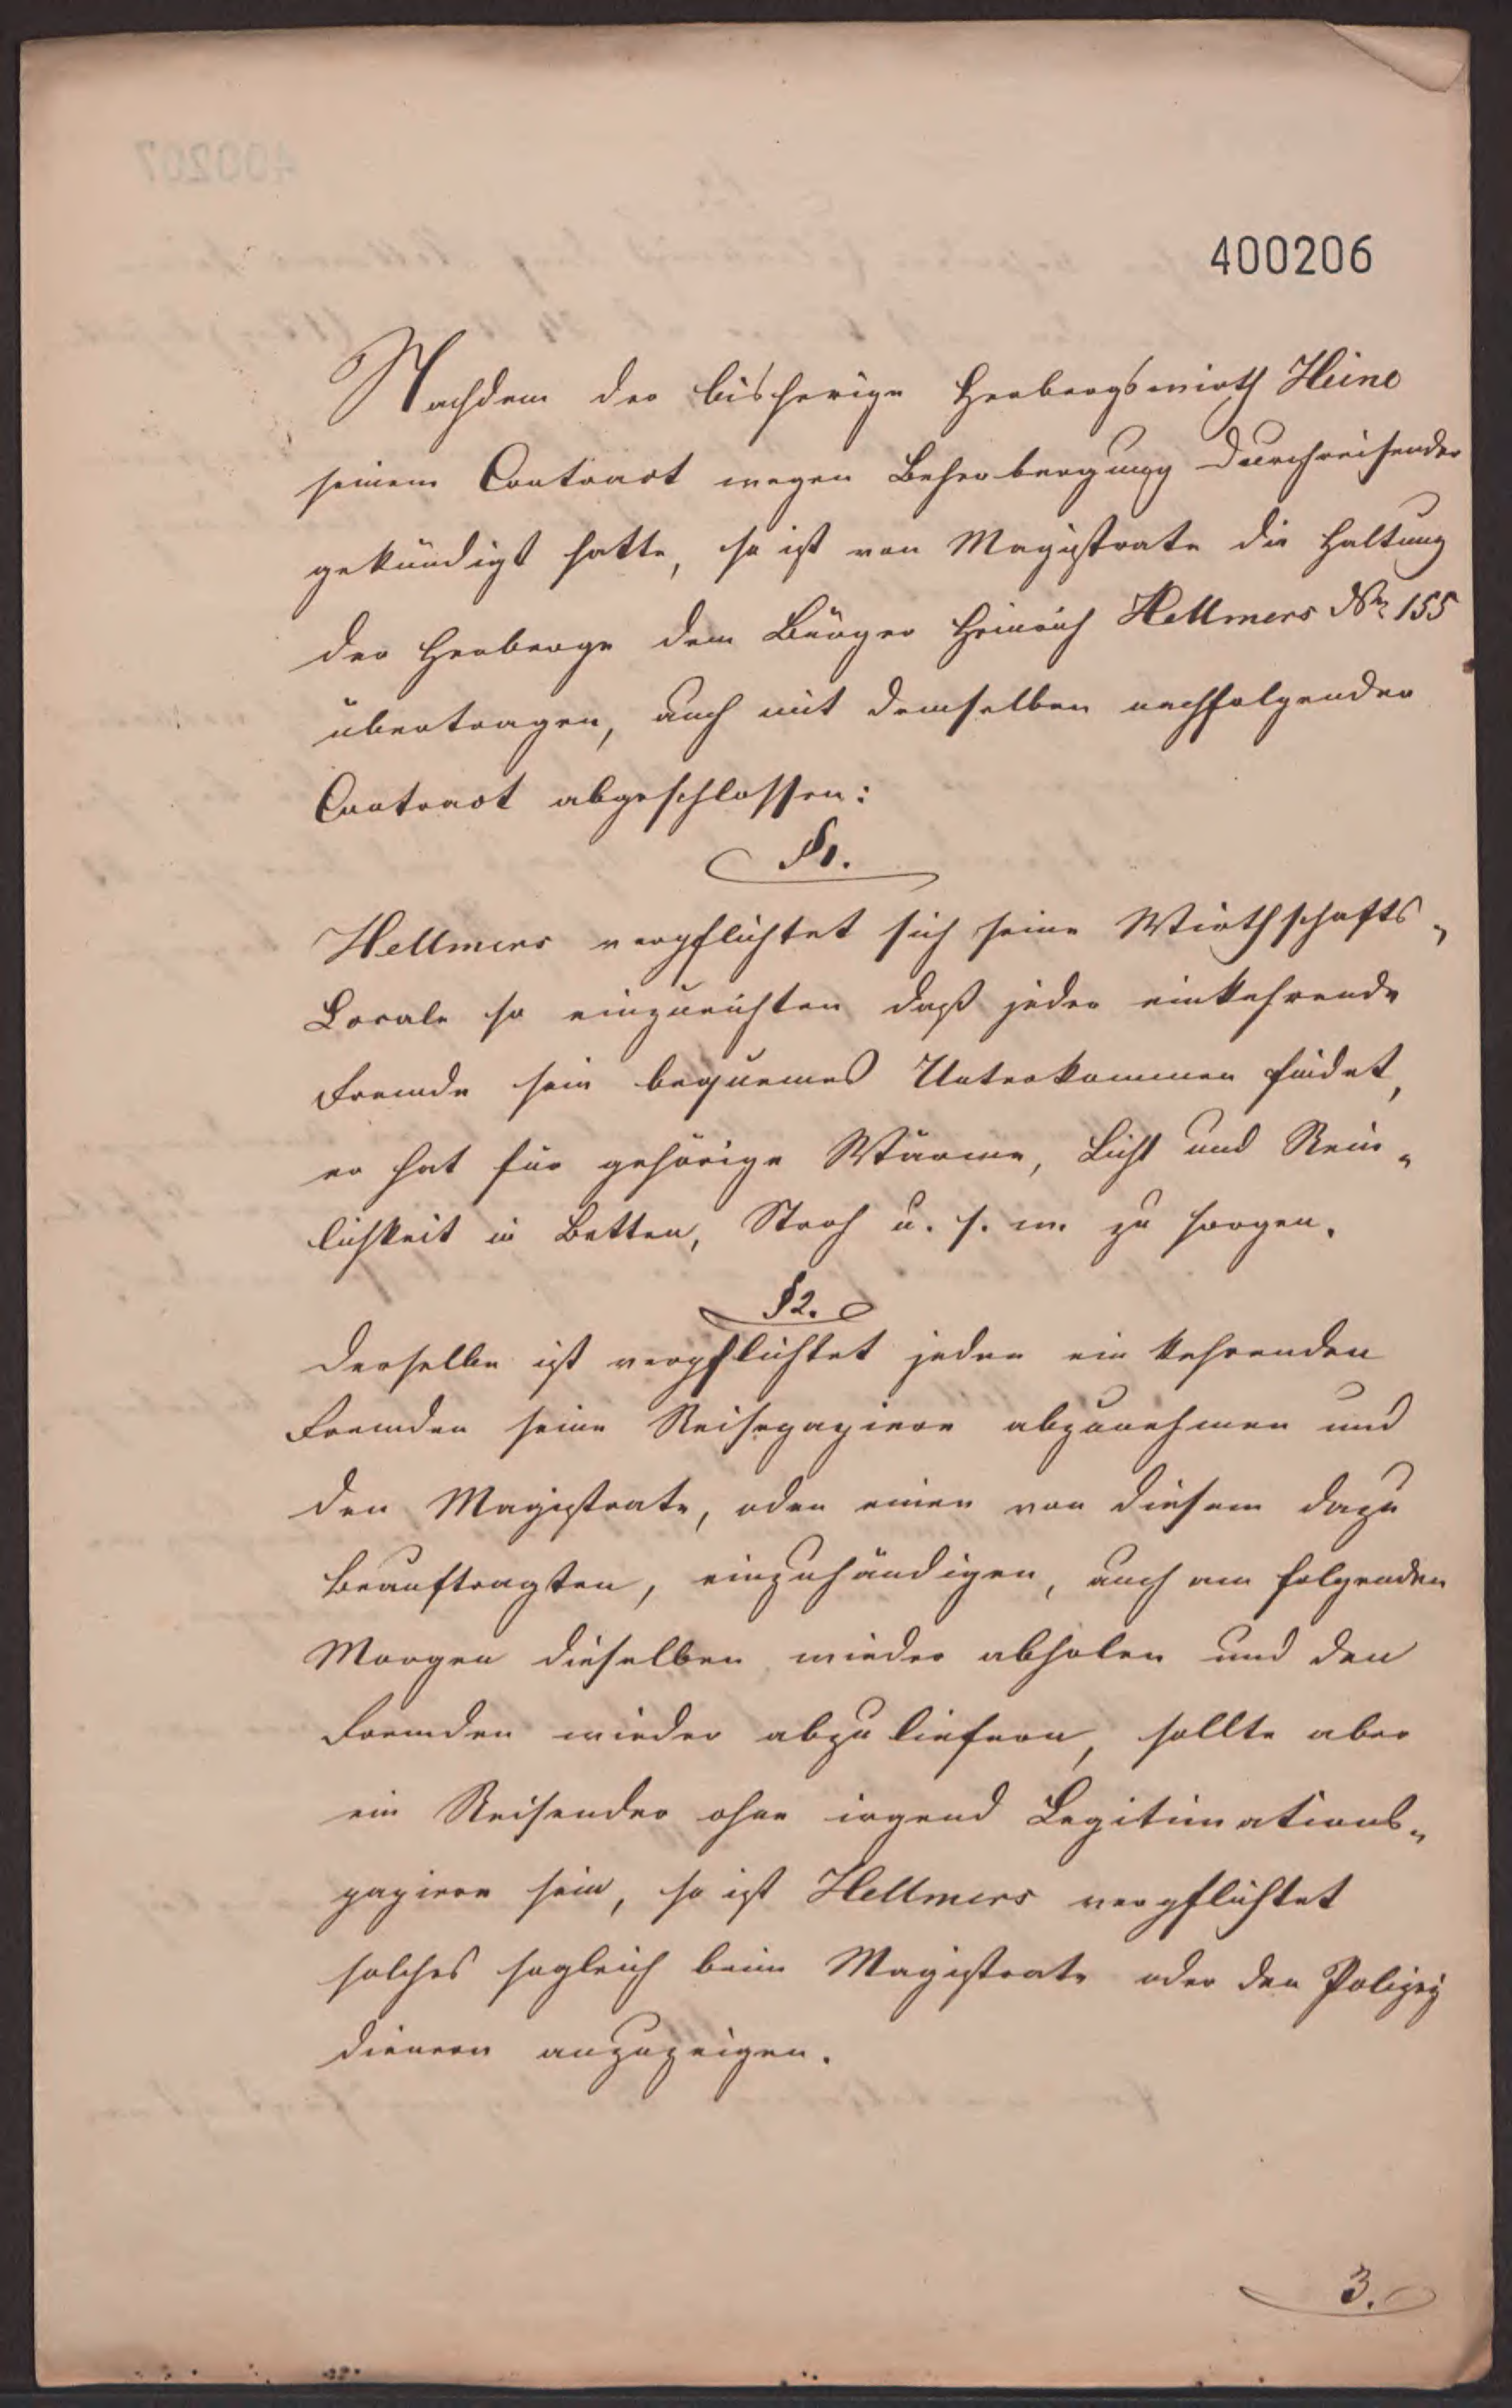 400206
Nachdem der bisherige Herbergswirth Heine
seinem Contract wegen Beherbergung Durchreisender
gekündigt hatte, so ist von Magistrate die Haltung
der Herberge dem Bürger Heinrich Hellmers No 155
übertragen, auch mit demselben nachfolgender
Contract abgeschlossen:
§1.
Hellmers verpflichtet sich seine Wirthschafts-
Locale so einzurichten daß jeder einkehrende
Fremde sein bequemes Unterkommen findet,
er hat für gehörige Wärme, Licht und Rein-
lichkeit in Betten, Stroh u. s. w. zu sorgen.
§2.
Derselbe ist verpflichtet jeden ein kehrenden
Fremden seine Reisepapiere abzunehmen und
den Magistrate, oder einen von diesem dazu
Beauftragten, einzuhändigen, auch am folgenden
Morgen dieselben wieder abholen und den
Fremden wieder abzuliefern, sollte aber
ein Reisender ohne irgend Legitimations-
papiere sein, so ist Hellmers verpflichtet
solches sogleich beim Magistrate oder den Polizey
dienern anzuzeigen.
3.